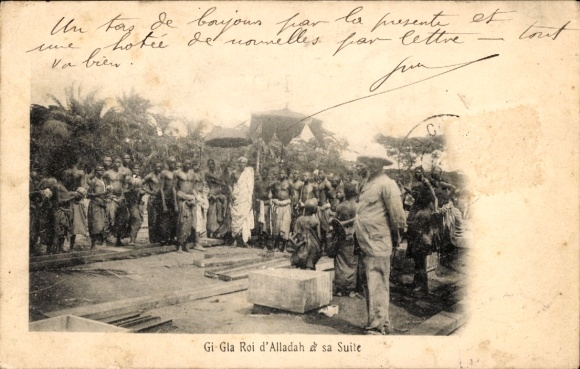 Un tas de bonjours par la presente et
une hotée de nouvelles par lettre — tout
va bien.
Gi Gla Roi d'Alladah & sa Suite